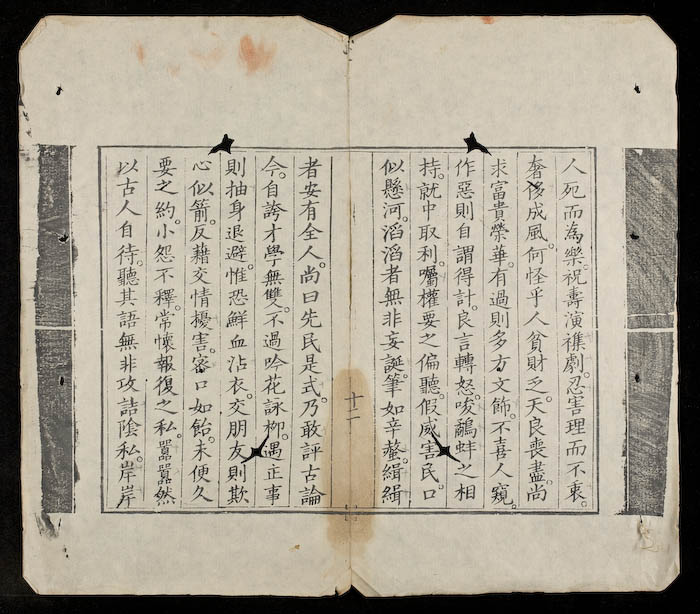 人死而為樂祝壽演襍劇。忍害理而不衷。
奢侈成風。何怪乎人貧財乏。天良喪盡。尚
求富貴榮華。有過則多方文飾。不喜人窺。
作惡則自謂得計。良言轉怒。唆鷸蚌之相
持。就中取利。囑權要之偏聽。假威害民。口
似懸河。滔滔者無非妄誕。筆如辛螫。緝緝
十二
者安有全人。尚曰先民是式。乃敢評古論
今。自誇才學無雙。不過吟花詠柳。遇正事
則抽身退避。惟恐鮮血沾衣。交朋友則欺
心似箭。反藉交情擾害。密口如飴。未便久
要之約。小怨不釋。常懷報復之私。囂囂然
以古人自待。聽其語無非攻詰陰私。岸岸